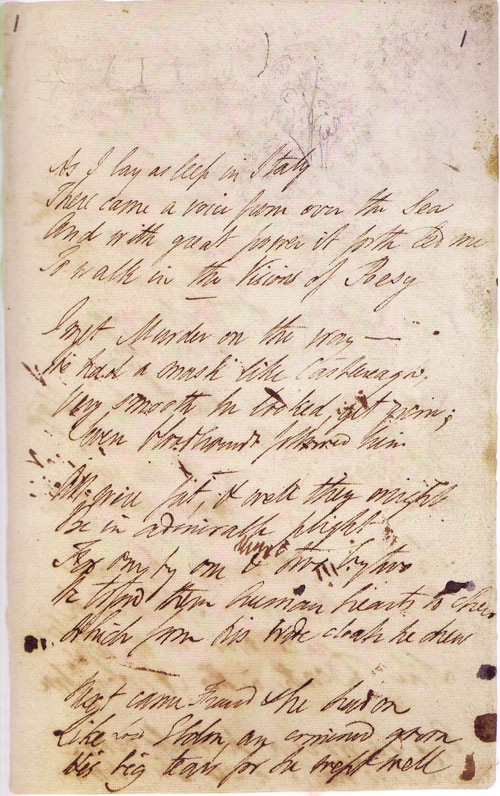 1 1
As I lay asleep in Italy
There came a voice from over the Sea
And with great power it forth led me
To walk in the Visions of Poesy
I met Murder on the way —
He had a mask like Castlereagh
Very smooth he looked yet grim;
Seven bloodhounds followed him
All were fat, & well they might
Be in admirable plight
For one by one & two by two
He tossed them human hearts to chew
Which from his wide cloak he drew
Next came Fraud & he had on
Like Lord Eldon, an ermined gown
His big tears for he wept well